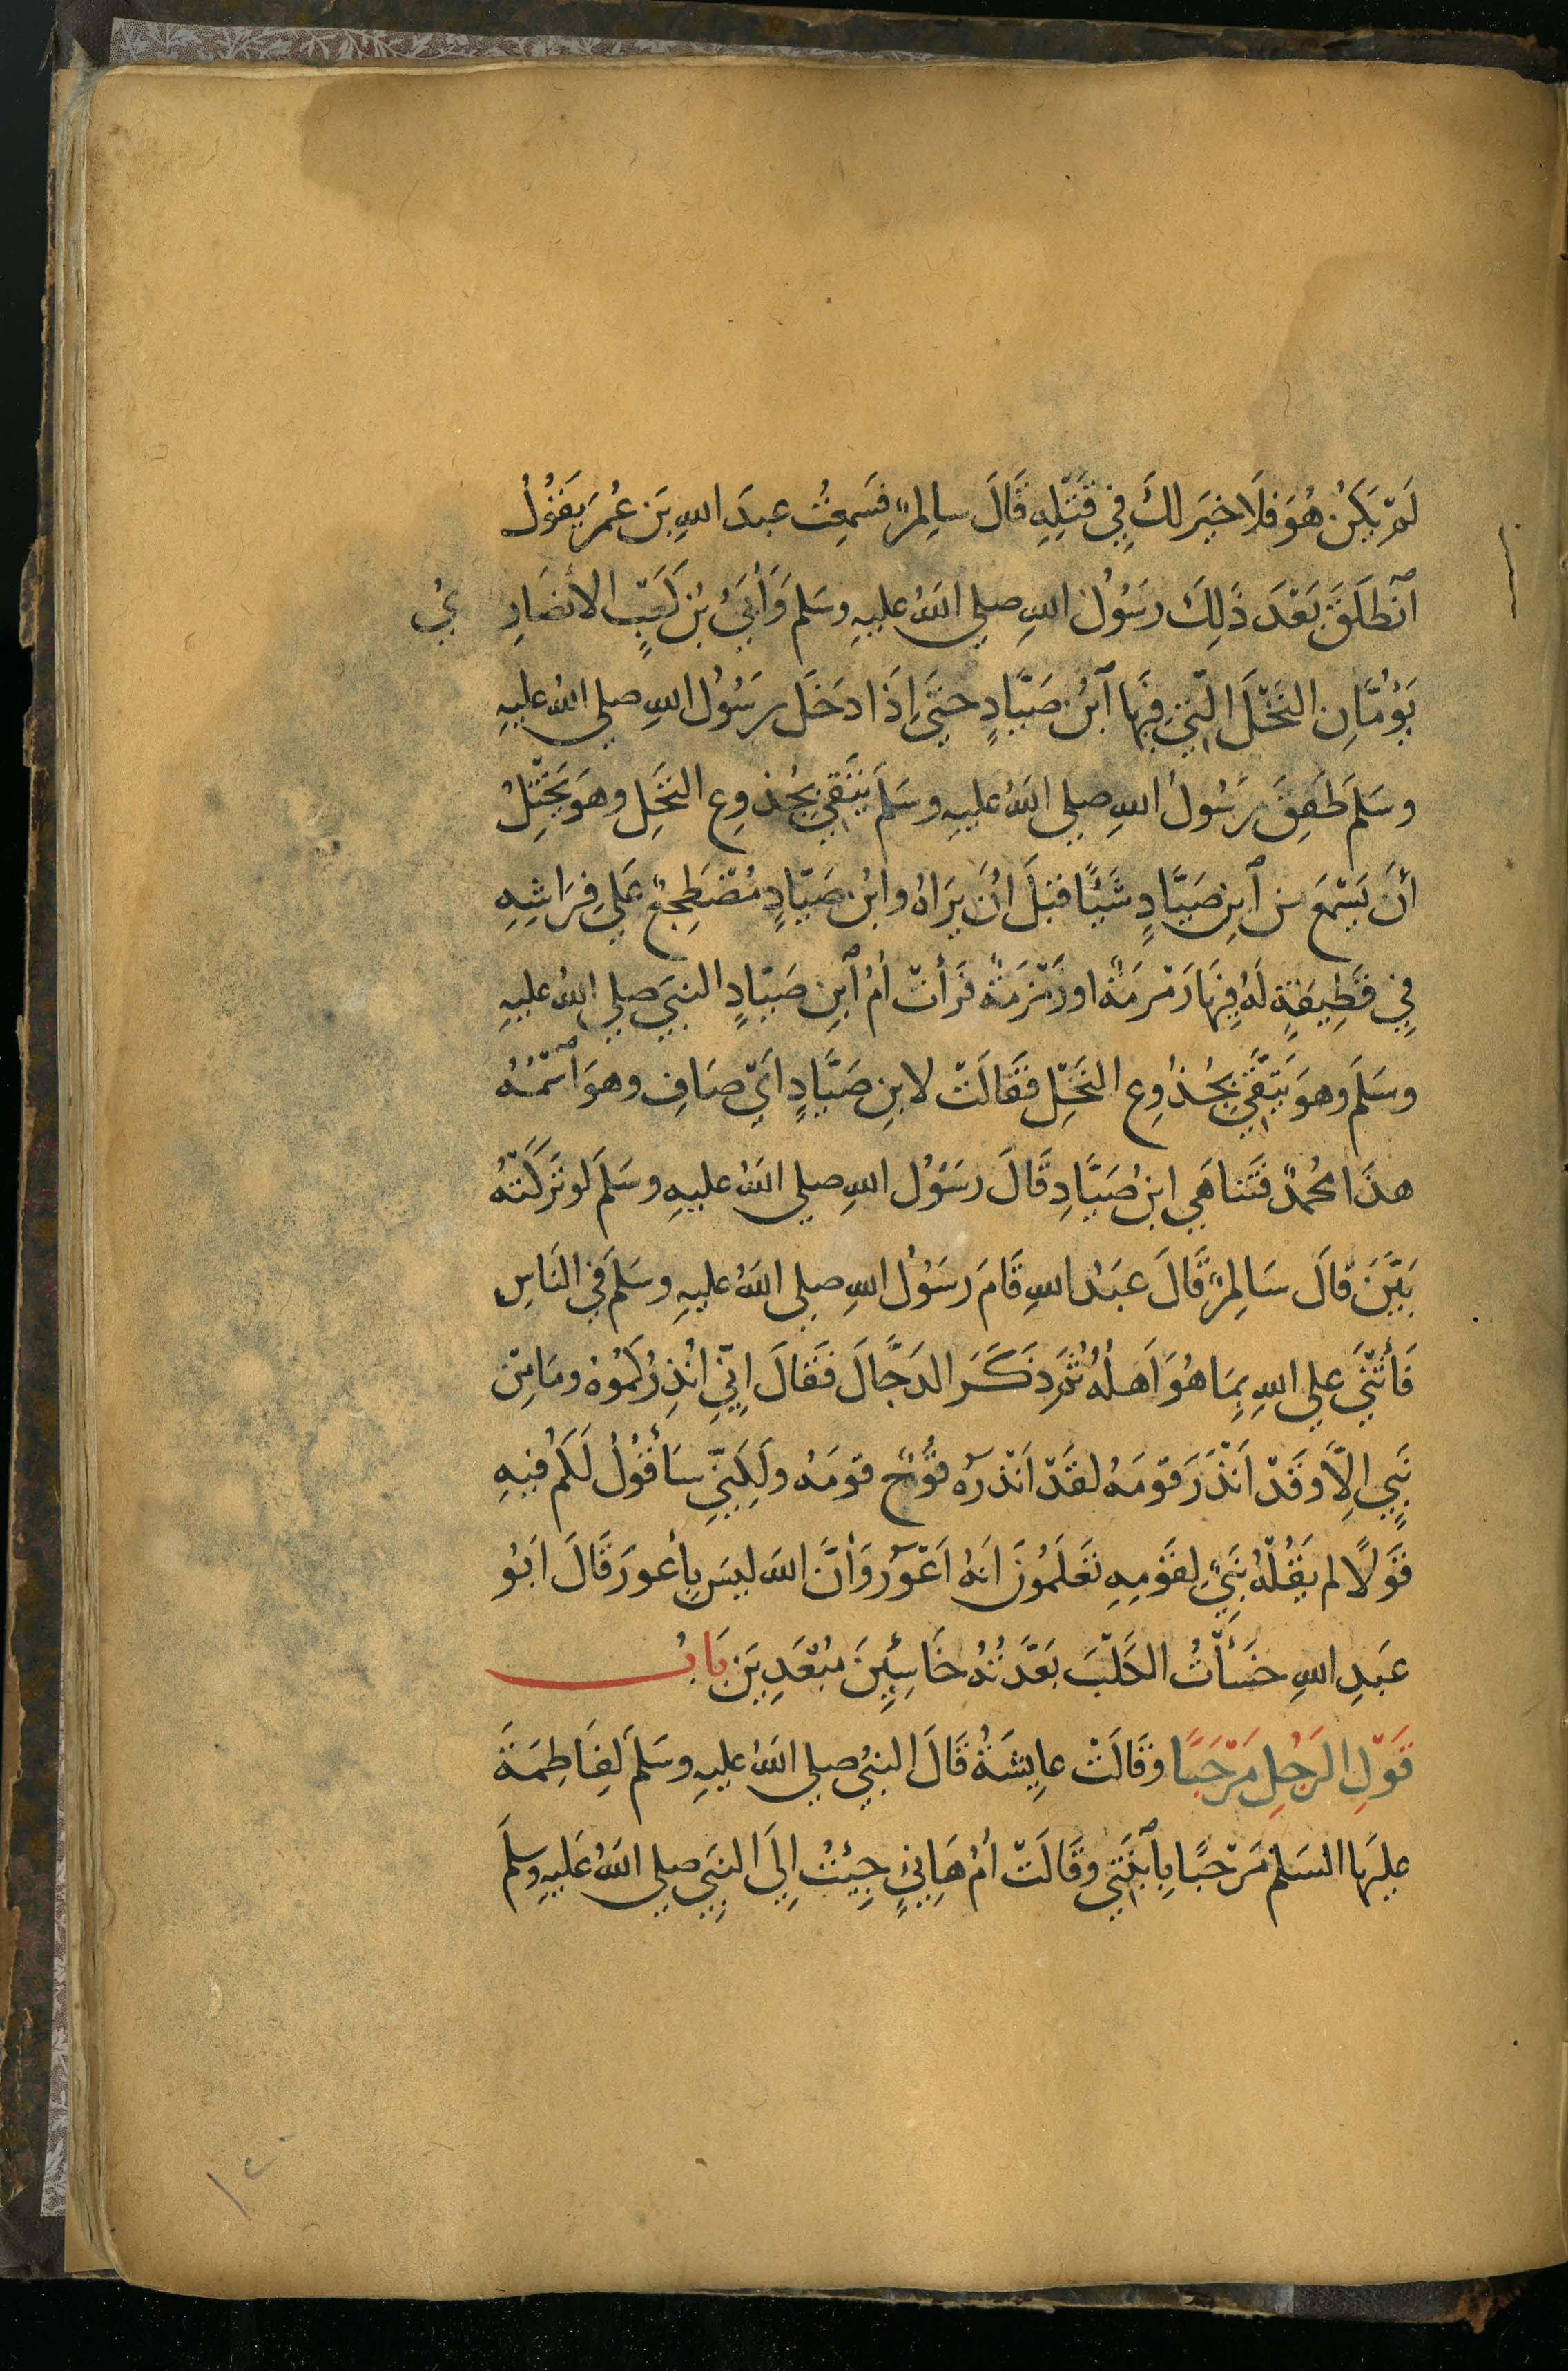 لَمْ يَكُنْ هُوَ فَلَا خيرَ لكَ فِي قَتْلِهِ قَالَ سالِمٌ فسَمِعْتُ عبدَ اللهِ بنَ عُمرَ يَقُولُ
ٱنْطَلَقَ بَعْدَ ذَلِكَ رسَوُلُ اللهِ صلي اللهُ عليهِ وسَلم وَأُبَيُّ بْنُ كَعْبٍ الأنصَارِ يُ
يَؤُمَّانِ النَّخْلَ الَّتِي فِيهَا ٱبْنُ صَيَّادٍ حتَّي إذَا دخَل رسَوُلُ اللهِ صلي اللهُ عليهِ
وسَلمَ طَفِقَ رسَوُلُ اللهِ صلي اللهُ عليهِ وسَلمَ يَتَّقِي بِجُذوعِ النخْلِ وهوَ يَخْتِلُ
أنْ يَسْمَعَ مِن ٱبنِ صَيَّادٍ شَيْئًا قبْلَ انْ يرَاهُ وابنُ صَيَّادٍ مُضْطَجِعٌ عَلي فِرَاشِهِ
فِي قَطِيفَةٍ لَهُ فِيهَا رَمْرَمَةٌ او زَمْزَمَةٌ فَرَأتْ أمُ ٱبنِ صَيَّادٍ النبيَ صلي اللهُ عليهِ
وسَلمَ وهوَ يَتَّقِي بِجُذوعِ النخْلِ فقَالَتْ لابنِ صَيَّادٍ ايْ صَافِ وهوَ ٱسْمُهُ
هذَا محُمدٌ فتَناهَي ابنُ صَيَّادِ قَالَ رسَوُلُ اللهِ صلي اللهُ عليهِ وسَلمَ لو تَرَكَتْهُ
بَيَّنَ قَالَ سَالِمٌ قَالَ عبَدُ اللهِ قَامَ رسَوُلُ اللهِ صلي اللهُ عليهِ وسَلمَ في النَاسِ
فَأثْنَي علي اللهِ بِمَا هُوَ اَهلُهُ ثُمَ ذكَرَ الدَجَّالَ فقَالَ اِنِّي اُنْذِرُكُمُوهُ ومَا مِنْ
نَبِيٍ الِاَّ وقَدْ انْذَرَ قوْمَهُ لقَدْ انْذرَهُ نُوحٌ قومَهُ ولَكِنِّي سَأقُولُ لَكُمْ فيهِ
قَوْلًا لم يقُلْهُ نَبِيٌ لِقَوْمِهِ تَعْلَمُونَ انهُ اعْوَرُ وَأنَّ اللهَ ليسَ بِأعورَ قَالَ ابَوُ
عَبدِ اللهِ خَسَأْتُ الكَلْبَ بَعَّدْتُهُ خَاسِئِينَ مبُعَدِينَ بَابُ
قَوْلِ الرَجُلِ مَرْحَبًا وقَالَتْ عاِيشَةُ قَالَ النبيُ صلي اللهُ عليهِ وسَلمَ لِفَاطِمَةَ
عليهَا السَلمُ مَرْحبًا بِٱبْنَتِي وقَالَتْ أمُ هَانِئٍ جِيْتُ إِلَي النبيِ صلي اللهُ عَليهِ وسلمَ